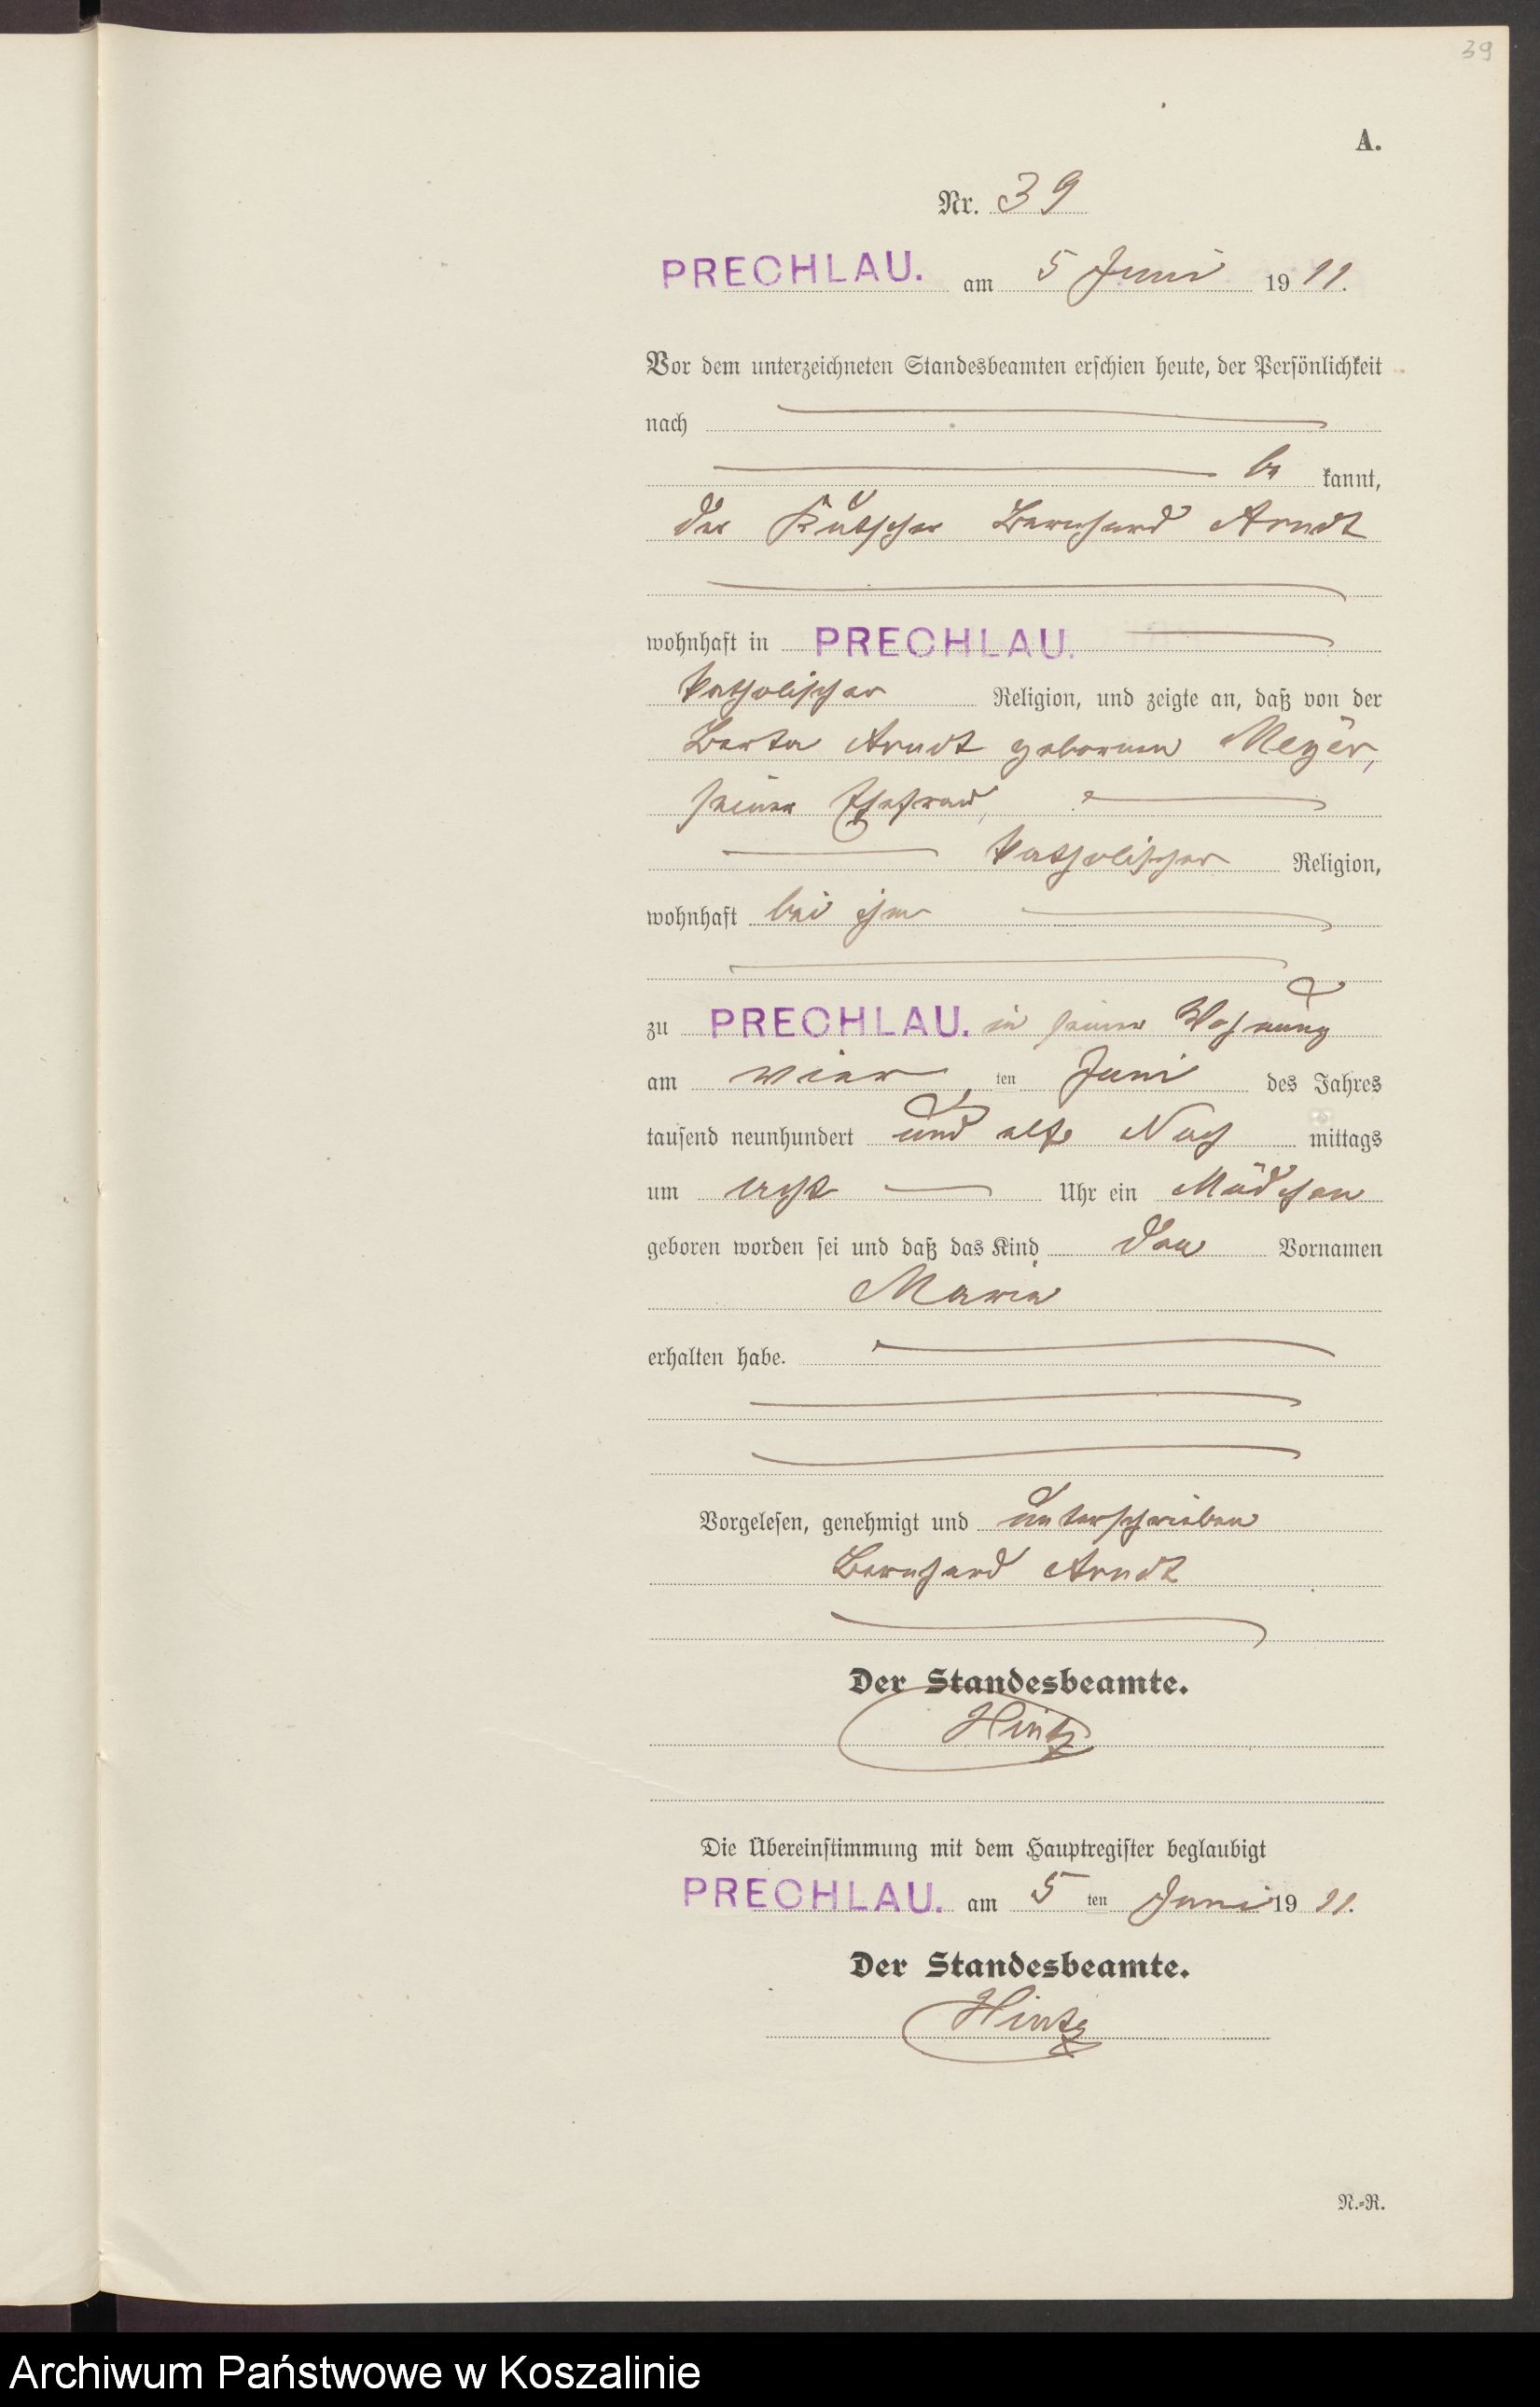 39
A.
Nr. 39
PRECHLAU. am 5 Juni 1911.
Vor dem unterzeichneten Standesbeamten erschien heute, der Persönlichkeit
nach
be kannt,
der Kutscher Bernhard Arndt
wohnhaft in PRECHLAU.
katholischer Religion, und zeigte an, daß von der
Berta Arndt geborenen Meyer,
seiner Ehefrau,
katholischer Religion,
wohnhaft bei ihm
zu PRECHLAU. in seiner Wohnung
am vier ten Juni des Jahres
tausend neunhundert und elf Nach mittags
um acht Uhr ein Mädchen
geboren worden sei und daß das Kind den Vornamen
Maria
erhalten habe.
Vorgelesen, genehmigt und unterschrieben
Bernhard Arndt
Der Standesbeamte.
Hintz
Die Übereinstimmung mit dem Hauptregister beglaubigt
PRECHLAU. am 5 ten Juni 1911.
Der Standesbeamte.
Hintz
N.-R.
Archiwum Państwowe w Koszalinie